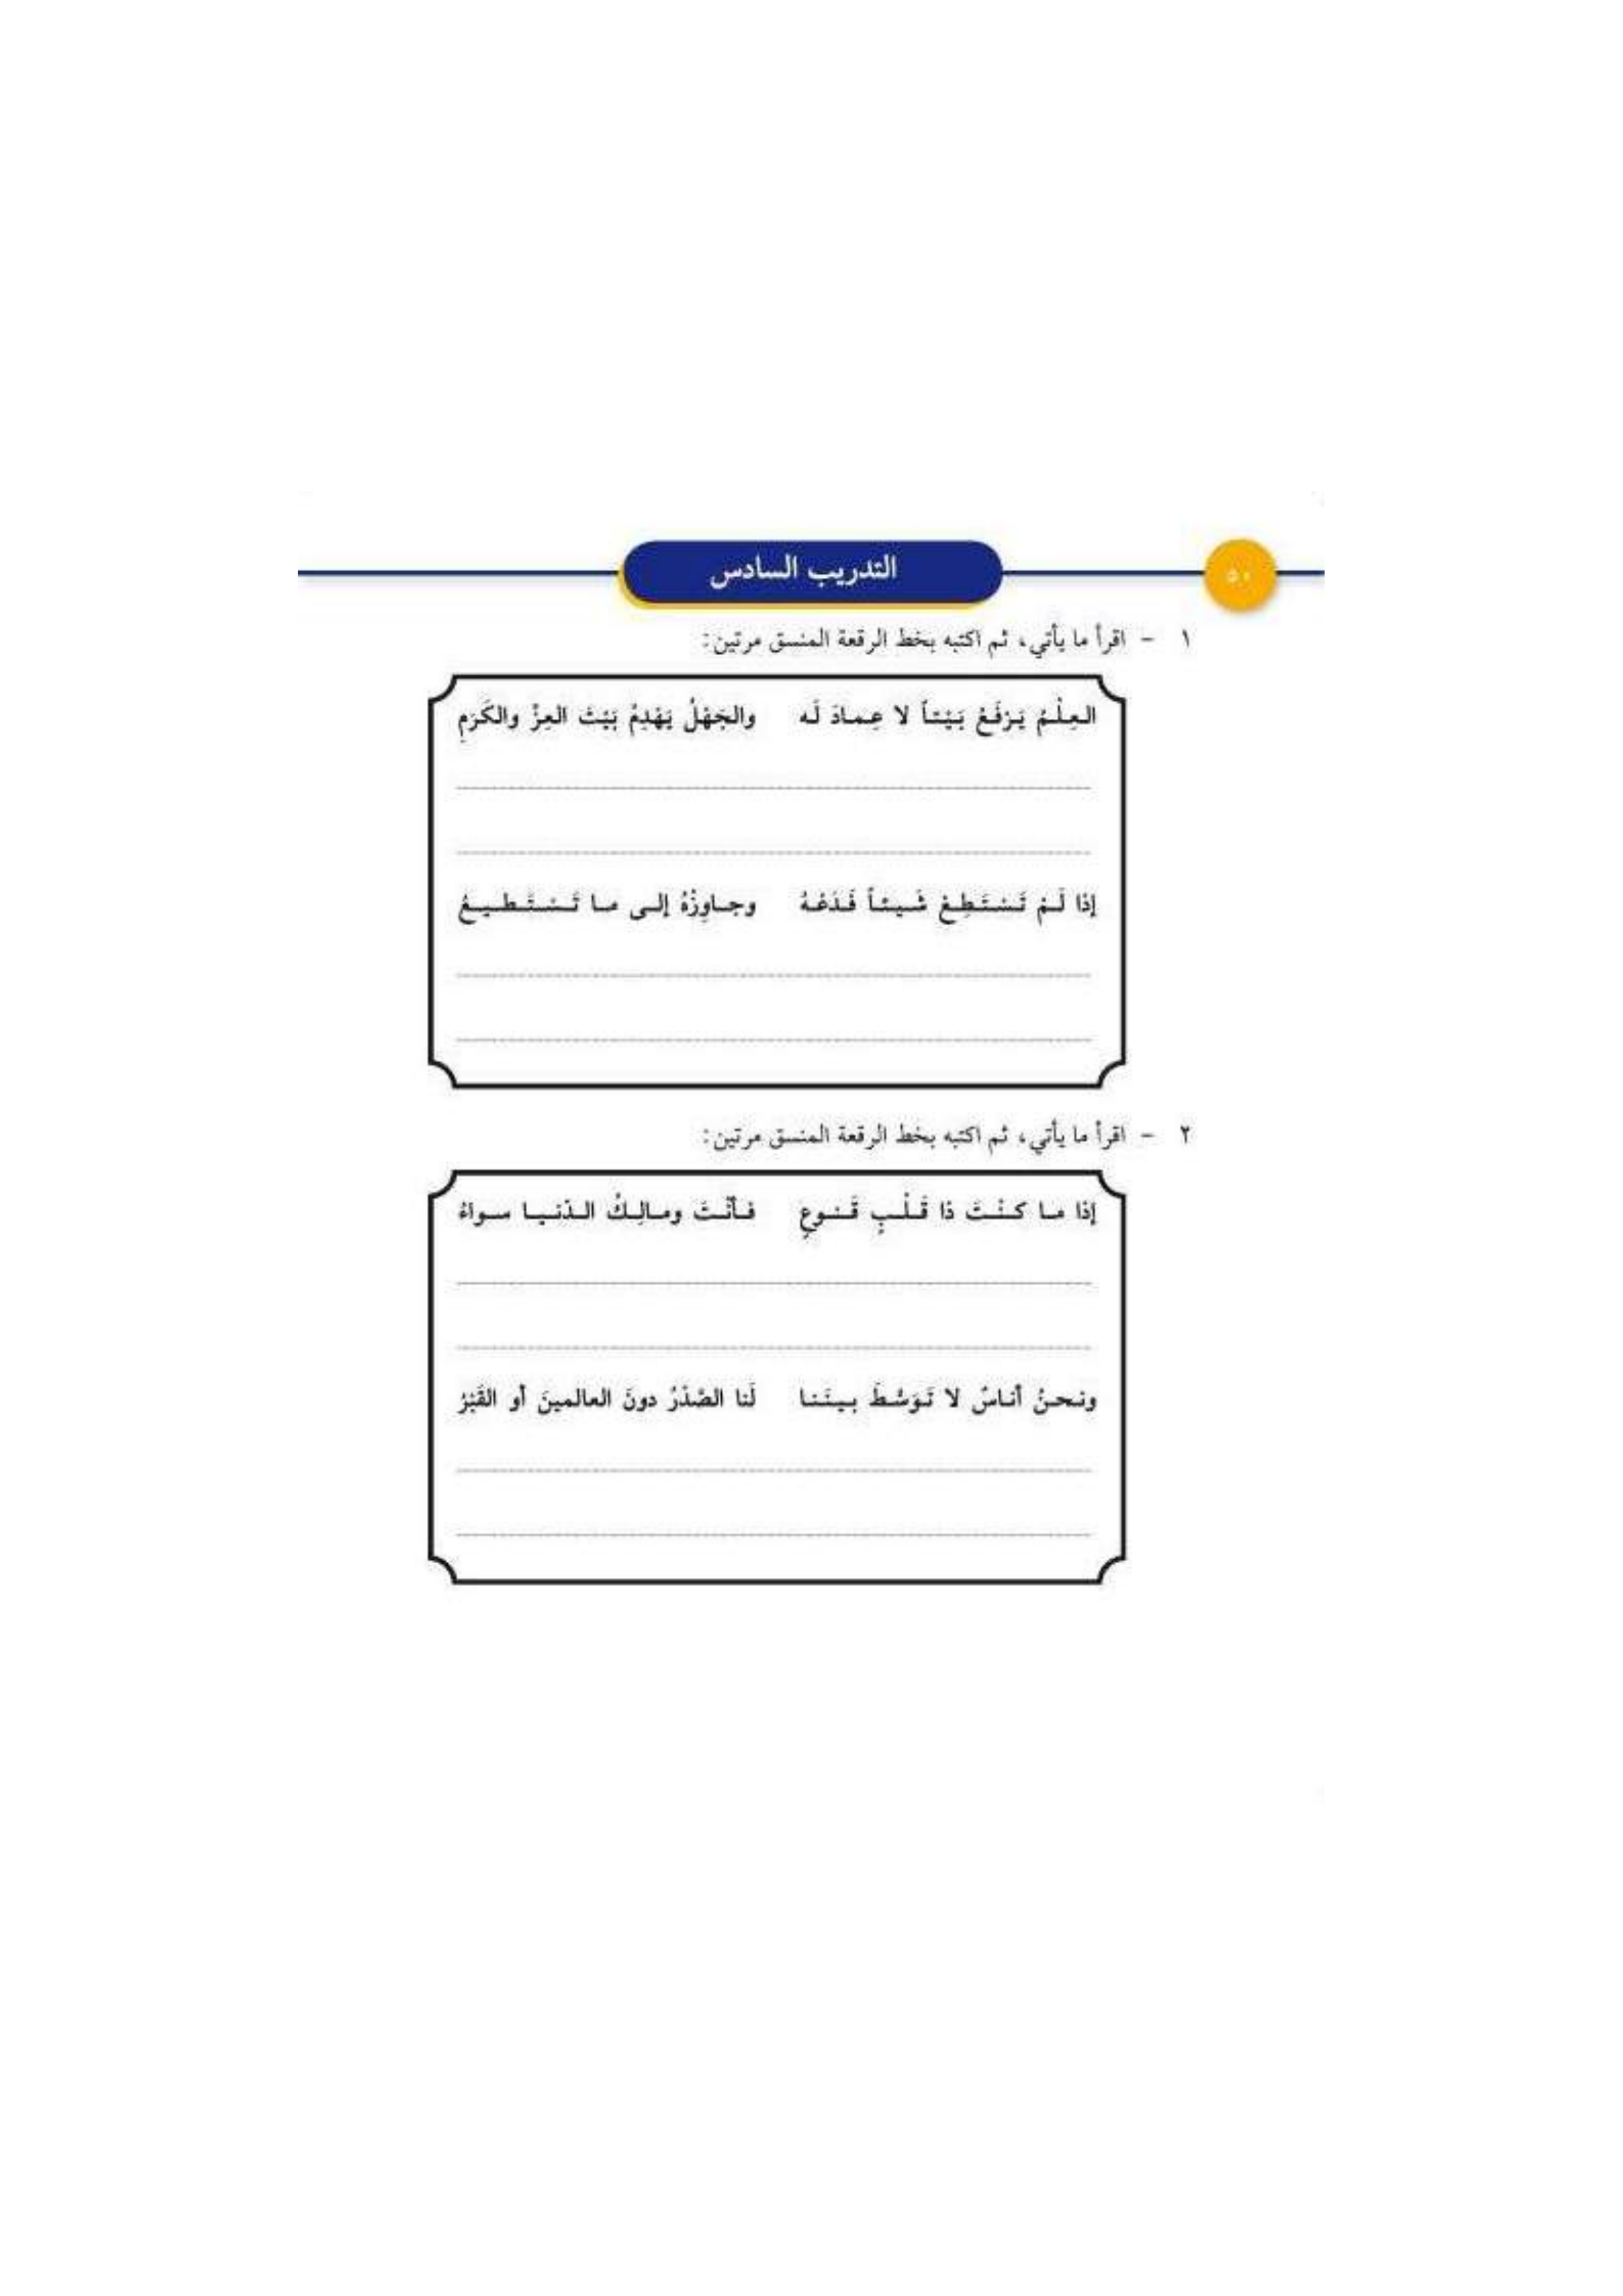 ٥٠
التدريب السادس
١ - اقرأ ما يأتي، ثم اكتبه بخط الرقعة المنسق مرتين:
العِلْمُ يَرْفَعُ بَيْتاً لا عِمادَ لَه والجَهْلُ يَهْدِمُ بَيْتَ العِزِّ والكَرَمِ
إذا لَمْ تَسْتَطِعْ شَيئاً فَدَعْهُ وجاوِزْهُ إلى ما تَسْتَطيعُ
٢ - اقرأ ما يأتي، ثم اكتبه بخط الرقعة المنسق مرتين:
إذا ما كنْتَ ذا قَلْبٍ قَنوعٍ فأنْتَ ومالِكُ الدّنيا سواءُ
ونحنُ أناسٌ لا تَوَسُّطَ بينَنا لَنا الصَّدْرُ دونَ العالمينَ أو القَبْرُ